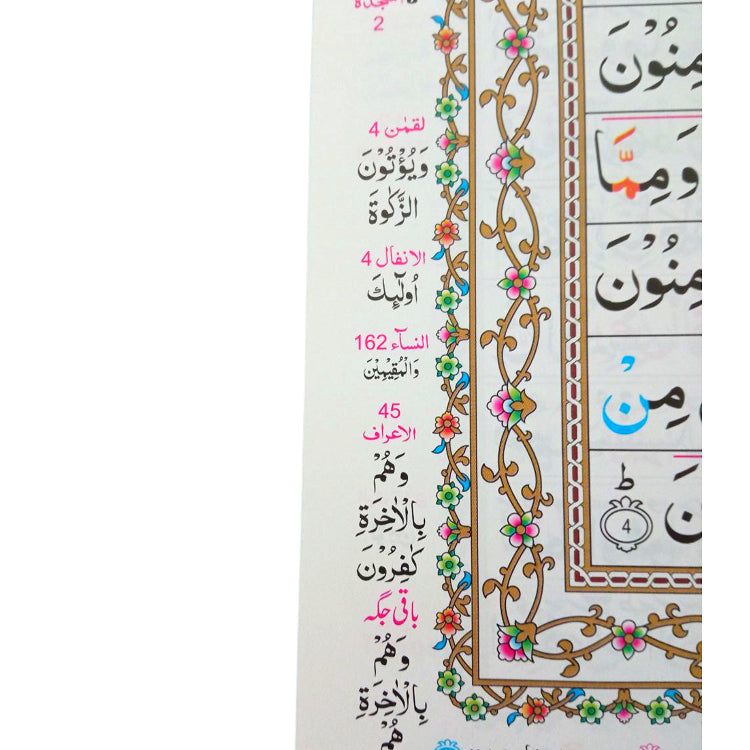 السجدة
2
لقمٰن 4
وَيُؤْتُوْنَ
الزَّكٰوةَ
الانفال 4
اُولٰٓئِكَ
النسآء 162
وَالْمُقِيْمِيْنَ
45
الاعراف
وَهُمْ
بِالْاٰخِرَةِ
كٰفِرُوْنَ
باقی جگہ
وَهُمْ
بِالْاٰخِرَةِ
هُمْ
مِنُوْنَ
وَمِمَّا
مِنُوْنَ
مِنْ
نَ ط
4